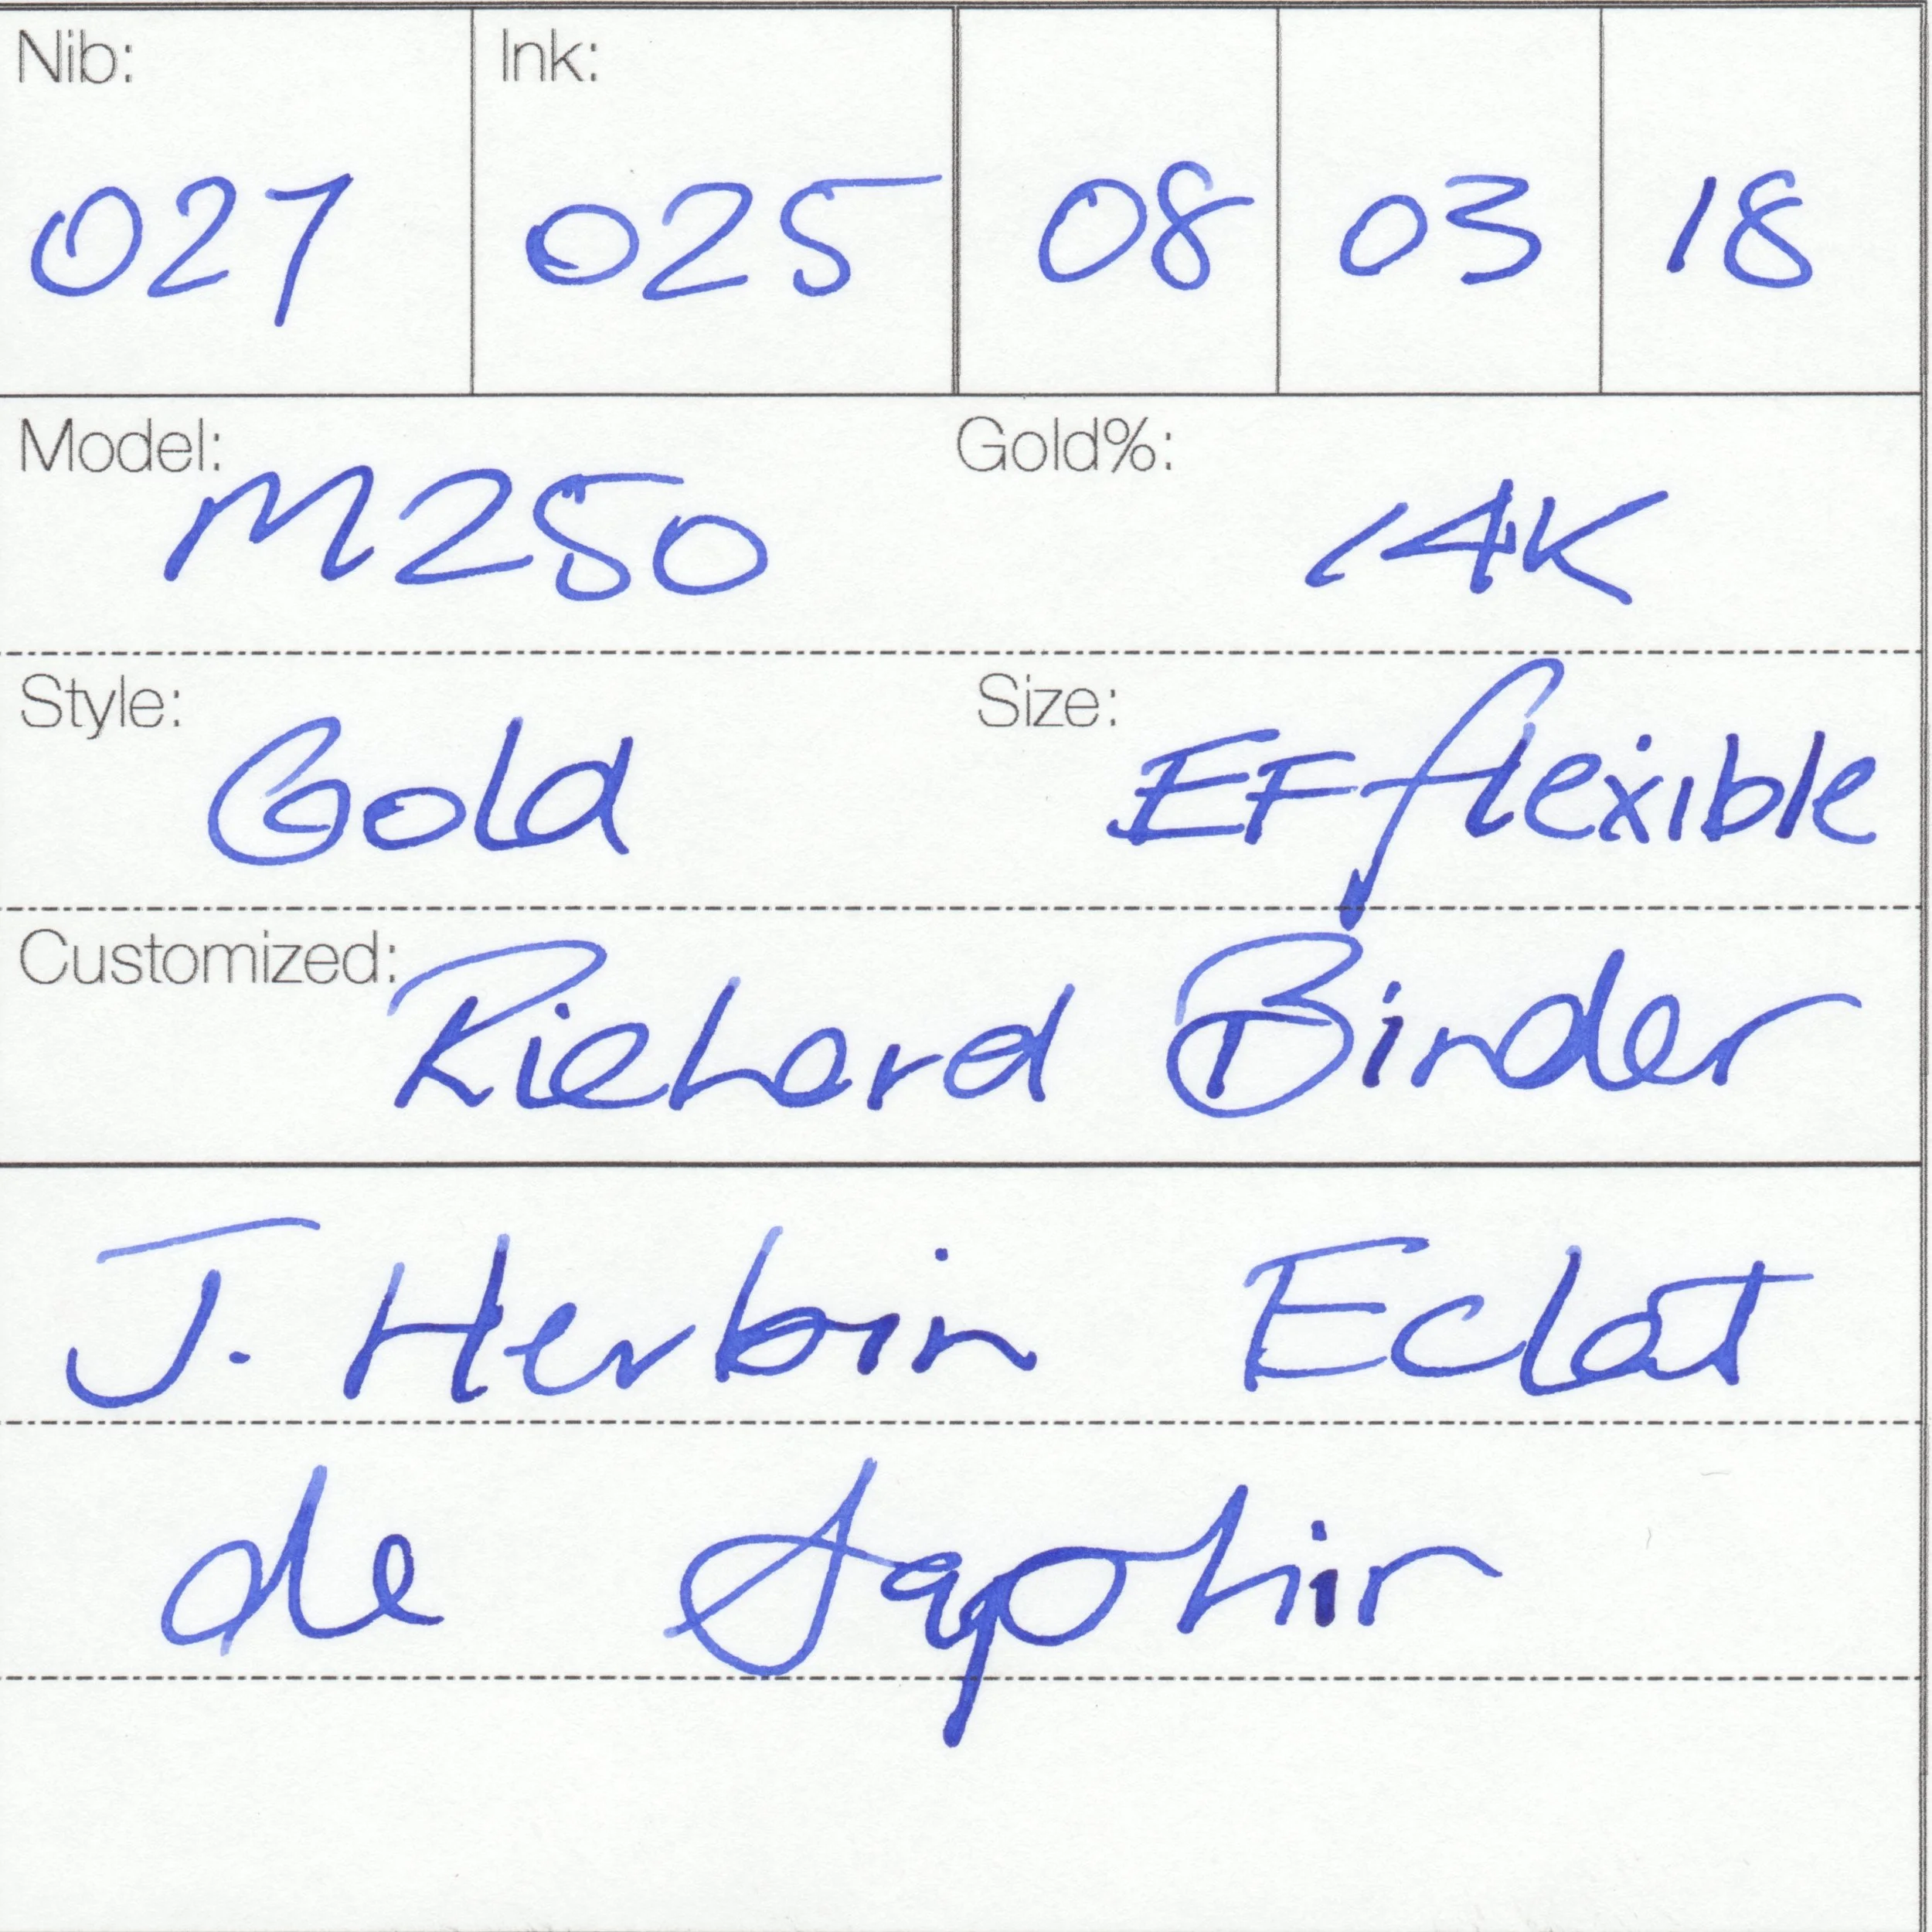 Nib: Ink:
027 025 08 03 18
Model: M250 Gold%: 14K
Style: Gold Size: EF flexible
Customized: Richard Binder
J. Herbin Eclat
de Saphir